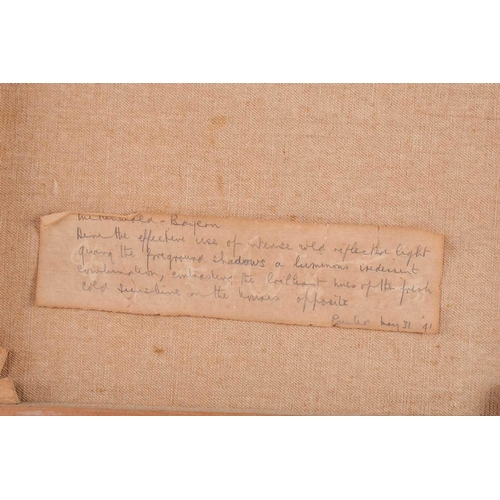 - Bayern
the effective use of intense cold reflective light
giving the foreground shadows a luminous iridescent
combination, embracing the brilliant hues of the fresh
cold sunshine on the houses opposite
May 31 '41